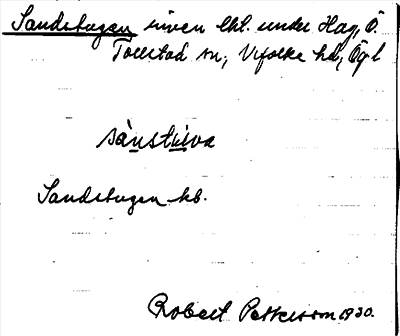 Sandstugan riven lht. under Hag, Ö.
Tollstad sn, Vifolka hd, Ögl
Sandstugan kb.
Robert Pettersson 1930.